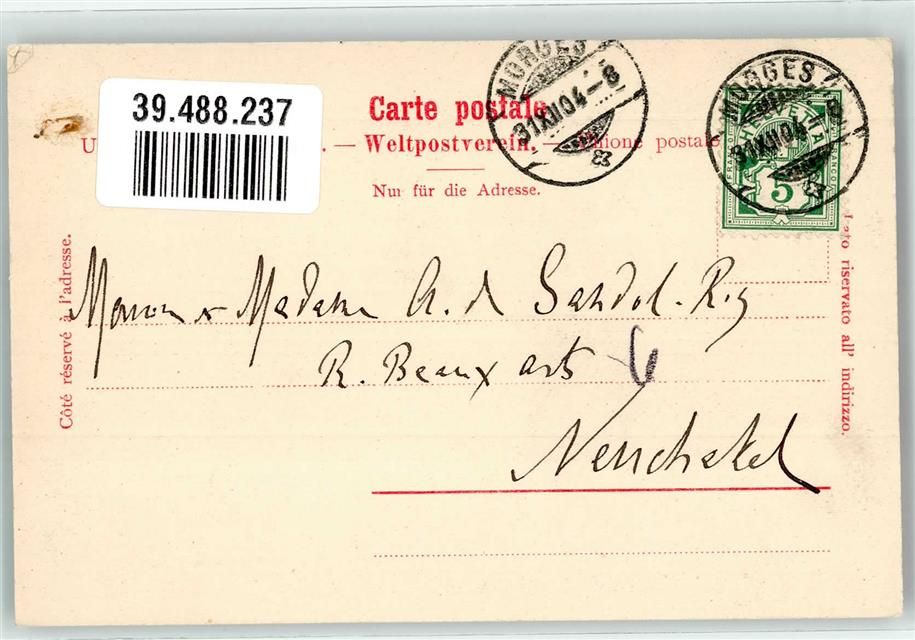 39.488.237
Carte postale.
U — Weltpostverein. — Unione postale
Nur für die Adresse.
Côté réservé à l'adresse.
Lato riservato all' indirizzo.
MORGES
31.XII.04.-8
MORGES
31.XII.04.-8
HELVETIA
FRANCO
5
Monsieur & Madame A. de Sandol-Roy
R. Beaux arts 6
Neuchatel